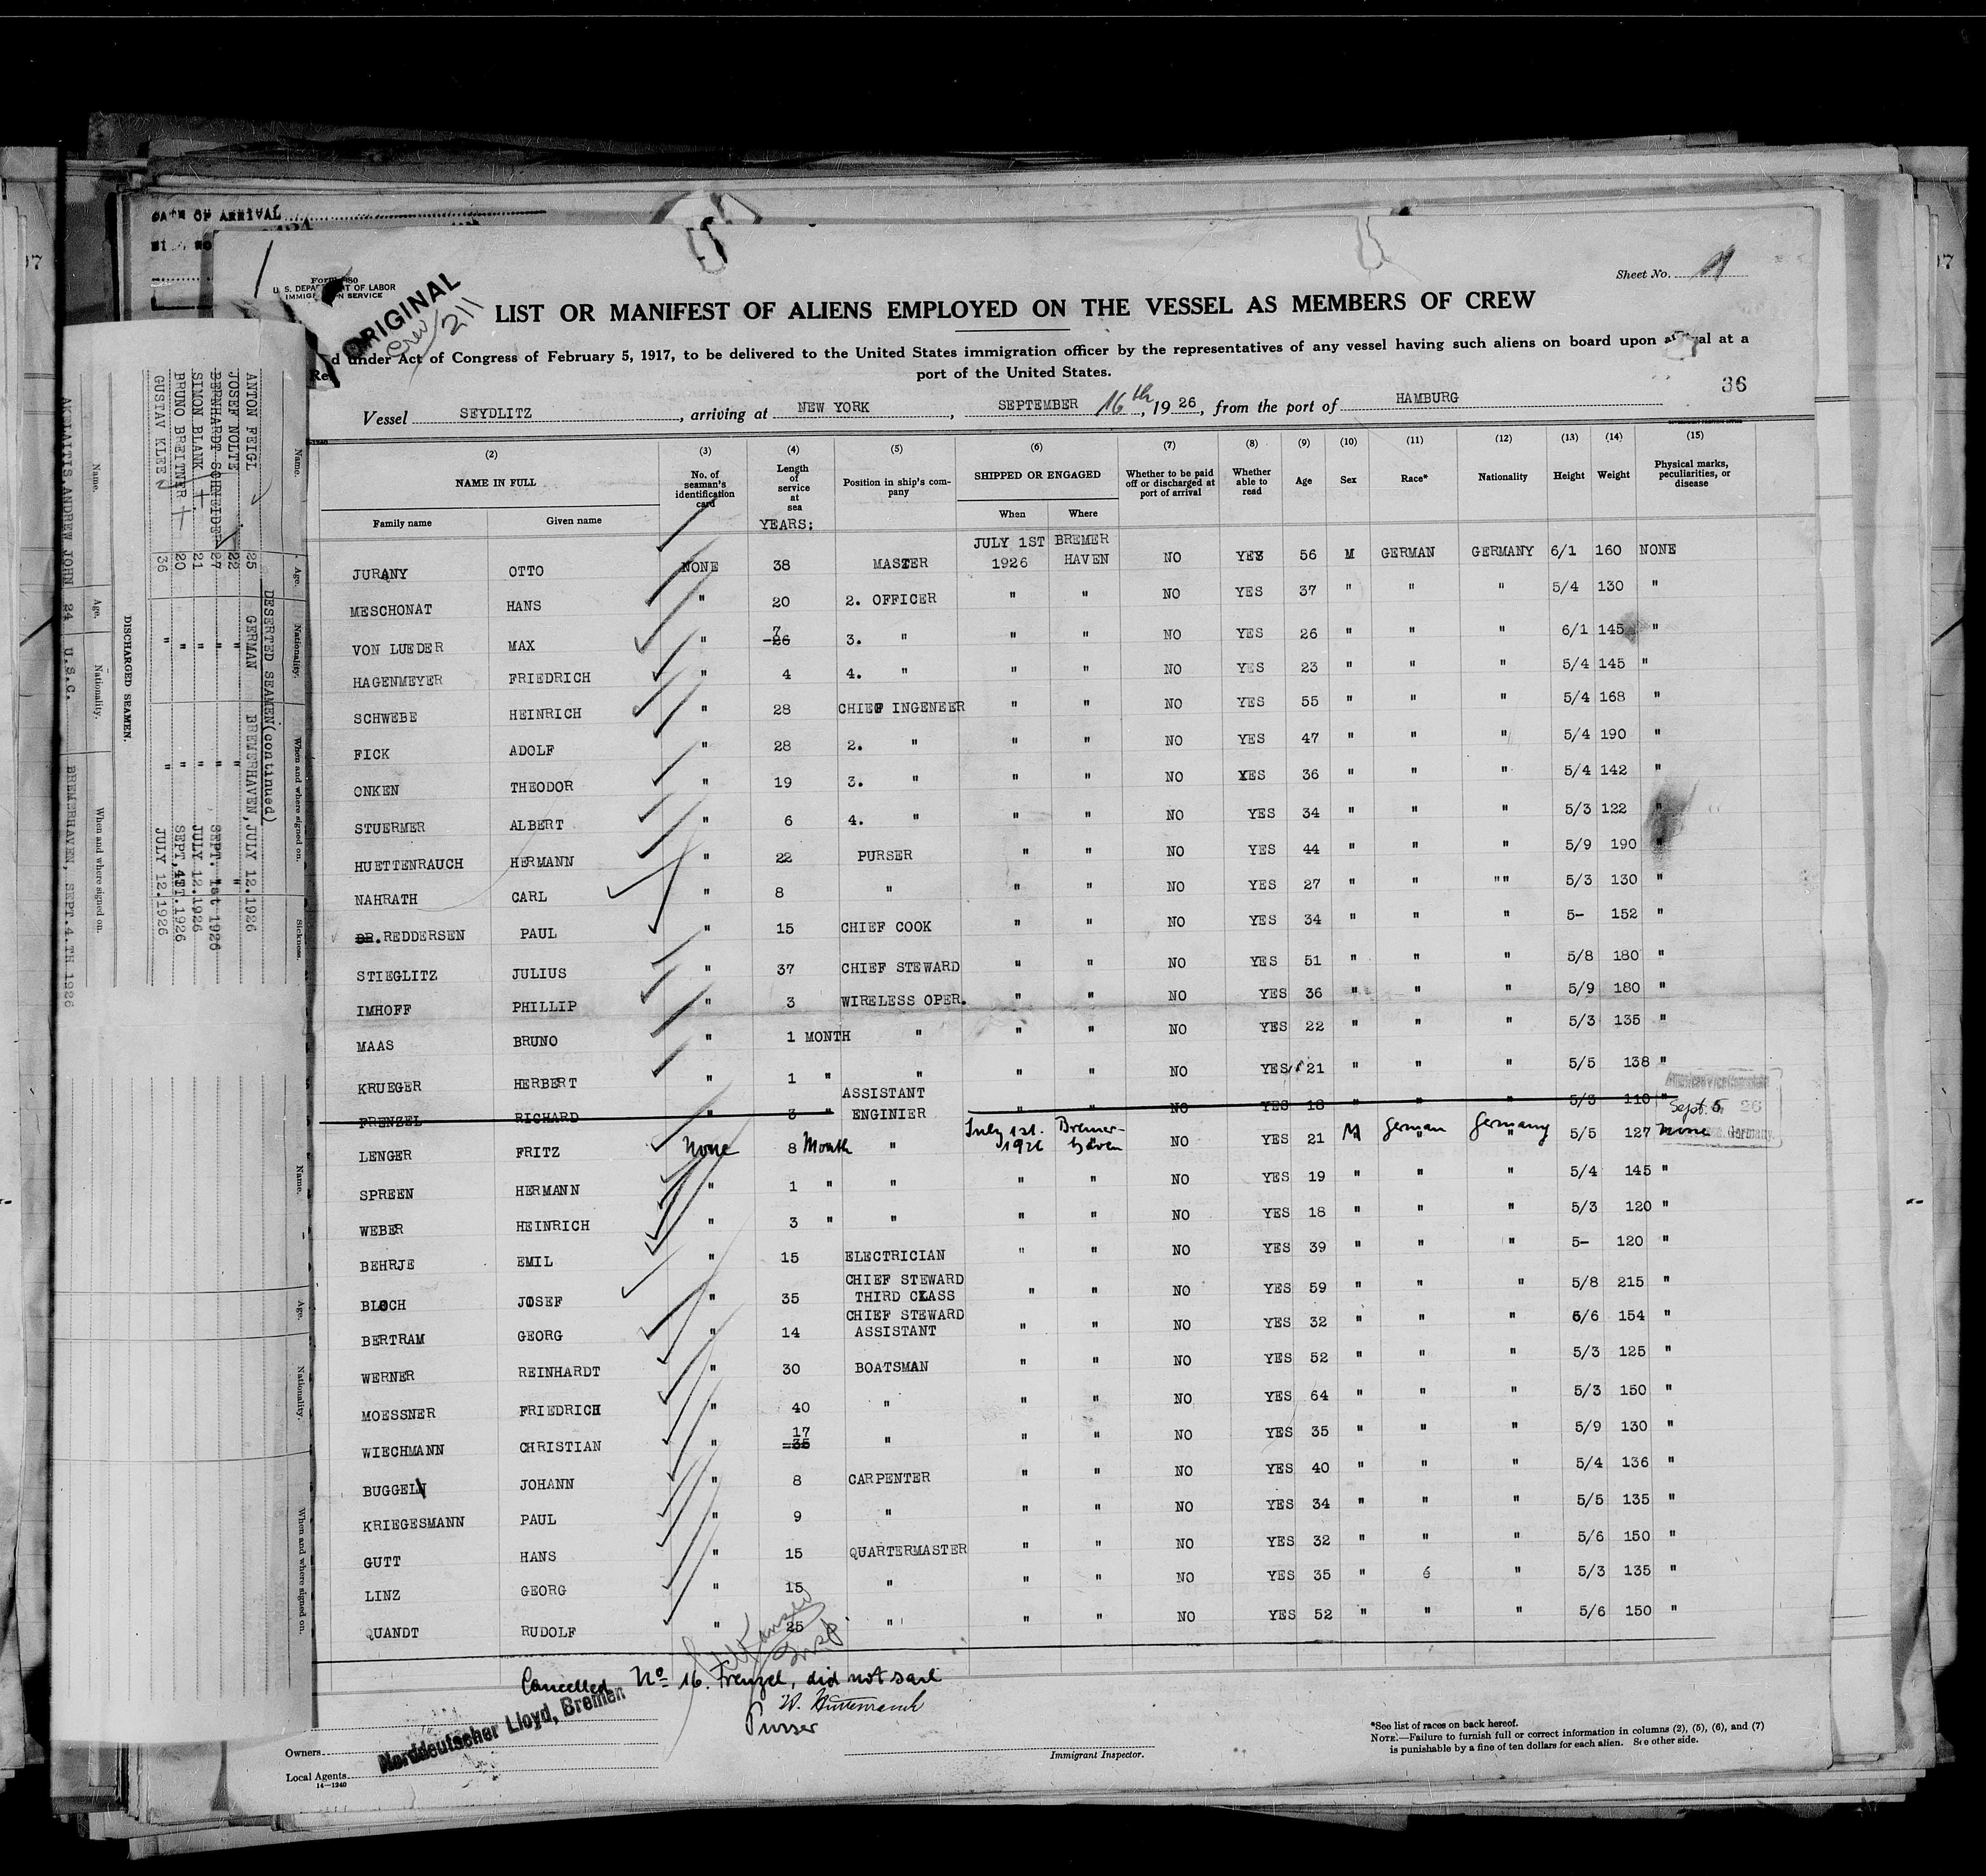 DATE OF ARRIVAL
Sheet No.
U. S. DEPARTMENT OF LABOR
IMMIGRATION SERVICE
ORIGINAL
Crew 211
LIST OR MANIFEST OF ALIENS EMPLOYED ON THE VESSEL AS MEMBERS OF CREW
d under Act of Congress of February 5, 1917, to be delivered to the United States immigration officer by the representatives of any vessel having such aliens on board upon arrival at a
port of the United States.
36
Vessel SEYDLITZ, arriving at NEW YORK, SEPTEMBER 16th, 1926, from the port of HAMBURG
(2) (3) (4) (5) (6) (7) (8) (9) (10) (11) (12) (13) (14) (15)
NAME IN FULL No. of seaman's identification card Length of service at sea Position in ship's company SHIPPED OR ENGAGED Whether to be paid off or discharged at port of arrival Whether able to read Age Sex Race* Nationality Height Weight Physical marks, peculiarities, or disease
Family name Given name YEARS: When Where
JURANY OTTO NONE 38 MASTER JULY 1ST 1926 BREMER HAVEN NO YES 56 M GERMAN GERMANY 6/1 160 NONE
MESCHONAT HANS " 20 2. OFFICER " " NO YES 37 " " " 5/4 130 "
VON LUEDER MAX " 7 26 3. " " " NO YES 26 " " " 6/1 145 "
HAGENMEYER FRIEDRICH " 4 4. " " " NO YES 23 " " " 5/4 145 "
SCHWEBE HEINRICH " 28 CHIEF INGENEER " " NO YES 55 " " " 5/4 168 "
FICK ADOLF " 28 2. " " " NO YES 47 " " " 5/4 190 "
ONKEN THEODOR " 19 3. " " " NO YES 36 " " " 5/4 142 "
STUERMER ALBERT " 6 4. " " " NO YES 34 " " " 5/3 122 "
HUETTENRAUCH HERMANN " 22 PURSER " " NO YES 44 " " " 5/9 190 "
NAHRATH CARL " 8 " " " NO YES 27 " " "" 5/3 130 "
DR. REDDERSEN PAUL " 15 CHIEF COOK " " NO YES 34 " " " 5- 152 "
STIEGLITZ JULIUS " 37 CHIEF STEWARD " " NO YES 51 " " " 5/8 180 "
IMHOFF PHILLIP " 3 WIRELESS OPER. " " NO YES 36 " " " 5/9 180 "
MAAS BRUNO " 1 MONTH " " " NO YES 22 " " " 5/3 135 "
KRUEGER HERBERT " 1 " " " " NO YES 21 " " " 5/5 138 "
FRENZEL RICHARD " 3 " ASSISTANT ENGINIER " " NO YES 18 " " " 5/3 110 "
Sept. 5, 26
LENGER FRITZ None 8 Month " July 1st. 1926 Bremerhaven NO YES 21 M German Germany 5/5 127 none
SPREEN HERMANN " 1 " " " " NO YES 19 " " " 5/4 145 "
WEBER HEINRICH " 3 " " " " NO YES 18 " " " 5/3 120 "
BEHRJE EMIL " 15 ELECTRICIAN " " NO YES 39 " " " 5- 120 "
BLOCH JOSEF " 35 CHIEF STEWARD THIRD CLASS " " NO YES 59 " " " 5/8 215 "
BERTRAM GEORG " 14 CHIEF STEWARD ASSISTANT " " NO YES 32 " " " 6/6 154 "
WERNER REINHARDT " 30 BOATSMAN " " NO YES 52 " " " 5/3 125 "
MOESSNER FRIEDRICH " 40 " " " NO YES 64 " " " 5/3 150 "
WIECHMANN CHRISTIAN " 17 35 " " " NO YES 35 " " " 5/9 130 "
BUGGELN JOHANN " 8 CARPENTER " " NO YES 40 " " " 5/4 136 "
KRIEGESMANN PAUL " 9 " " " NO YES 34 " " " 5/5 135 "
GUTT HANS " 15 QUARTERMASTER " " NO YES 32 " " " 5/6 150 "
LINZ GEORG " 15 " " " NO YES 35 " 6 " 5/3 135 "
QUANDT RUDOLF " 25 " " " NO YES 52 " " " 5/6 150 "
Cancelled No 16. Frenzel, did not sail
Purser
Norddeutscher Lloyd, Bremen
Owners
Local Agents
14—1240
Immigrant Inspector.
*See list of races on back hereof.
NOTE.—Failure to furnish full or correct information in columns (2), (5), (6), and (7)
is punishable by a fine of ten dollars for each alien. See other side.
Name. Age. Nationality. When and where signed on. Sickness.
DESERTED SEAMEN(continued)
ANTON FEIGL 25 GERMAN BREMERHAVEN, JULY 12.1926
JOSEF NOLTE 22 " " "
BERNHARDT SCHNEIDER 27 " " SEPT. 1st 1926
SIMON BLANK 21 " " JULY 12.1926
BRUNO BREITNER 20 " " SEPT. 1926
GUSTAV KLEE 36 " " JULY 12.1926
DISCHARGED SEAMEN.
Name. Age. Nationality. When and where signed on.
ANDREW JOHN 24 U.S.C. BREMERHAVEN, SEPT.4.TH 1926
Name. Age. Nationality. When and where signed on.